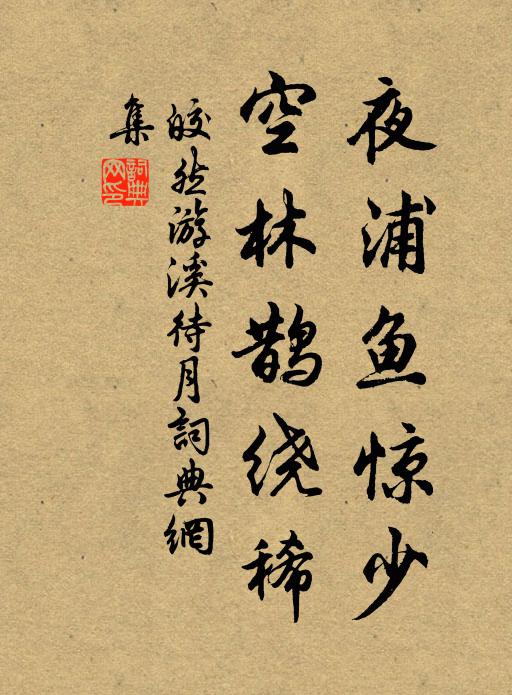 夜浦鱼惊少
空林鹊绕稀
皎然游溪待月詞典網
集
詞典
网印